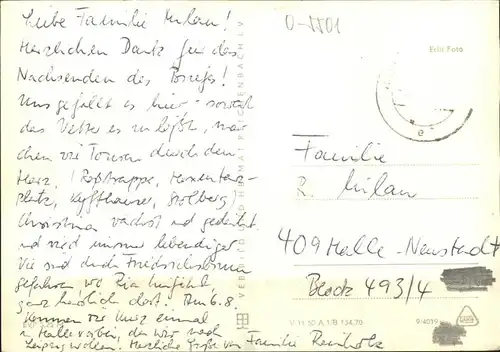 Liebe Familie Milan!
Herzlichen Dank für das
Nachsenden des Briefes!
Uns gefällt es hier - soweit
das Wetter es zuläßt, ma-
chen wir Touren durch den
Harz. (Roßtrappe, Hexentanz-
platz, Kyffhäuser, Stolberg)
wächst und gedeiht
und wird immer lebendiger
Wir sind durch Friedrichsbrunn
gefahren, wo
ganz herrlich dort. Am 6.8.
kommen wir kurz einmal
in Halle vorbei, da wir nach
Leipzig wollen. Herzliche Grüße von Familie
0-8801
Echt Foto
Familie
R. Milan
409 Halle-Neustadt
Block 493/4
V 11 50 A 1/B 134/70
9/4019